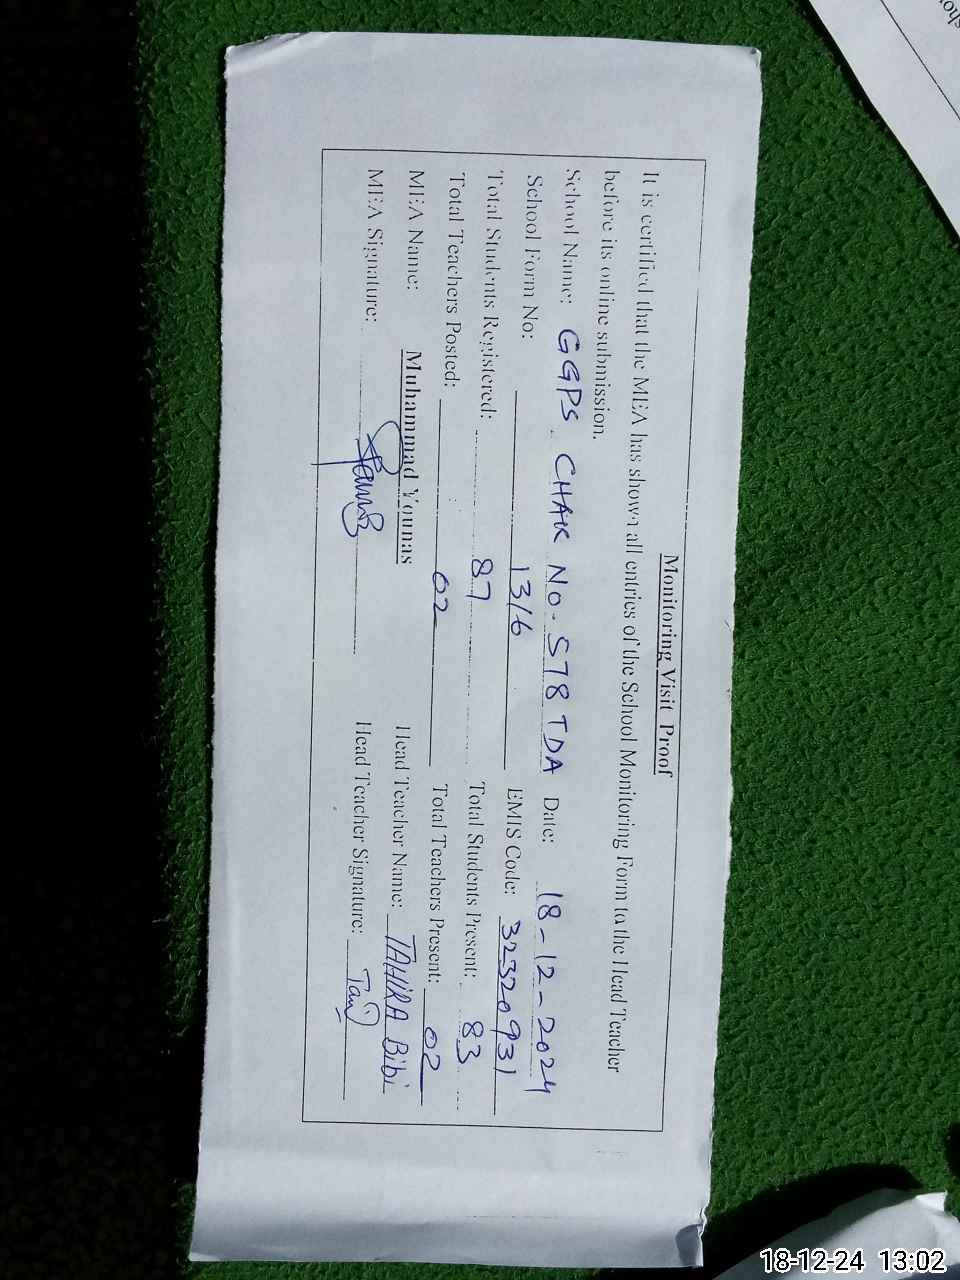 Monitoring Visit Proof
It is certified that the MEA has shown all entries of the School Monitoring Form to the Head Teacher
before its online submission.
School Name: GGPS CHAK No. 578 TDA Date: 18-12-2024
School Form No: 1316 EMIS Code: 32320931
Total Students Registered: 87 Total Students Present: 83
Total Teachers Posted: 02 Total Teachers Present: 02
MEA Name: Muhammad Younas Head Teacher Name: TAHIRA Bibi
MEA Signature: Head Teacher Signature:
18-12-24 13:02